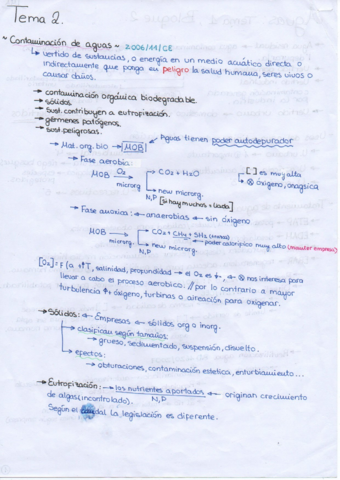 Tema 2.
~ Contaminación de aguas ~ 2006/11/CE
↳ vertido de sustancias, o energía en un medio acuático directa o
indirectamente que ponga en peligro la salud humana, seres vivos o
causar daños.
→ contaminación orgánica biodegradable.
→ sólidos.
→ sust. contribuyen a eutropización.
→ gérmenes patógenos.
→ sust. peligrosas.
→ Mat. org. bio → MOB Aguas tienen poder autodepurador
→ Fase aerobia:
MOB O₂ → CO₂ + H₂O
microorg. → new microrg.
N,P [si hay muchos = liada]
[ ] es muy alta
⊗ oxígeno, anaoxica
→ Fase anoxica: ← anaerobias ← sin oxígeno
MOB → CO₂ + CH₄ + SH₂
microrg. → new microrg.
N,P
poder calorífico muy alto
[O₂] = f(a +↑T, salinidad, profundidad → el O₂ es ↓, ← ⊗ nos interesa para
llevar a cabo el proceso aerobico. // por lo contrario a mayor
turbulencia ↑ oxígeno, turbinas o aireación para oxigenar.
→ Sólidos: ← Empresas ← sólidos org o inorg.
→ clasifican según tamaños:
↳ grueso, sedimentado, suspensión, disuelto.
→ efectos:
↳ obturaciones, contaminación estetica, enturbiamiento...
→ Eutropización: ← los nutrientes aportados ← originan crecimiento
N,P
de algas (incontrolado).
Según el caudal la legislación es diferente.